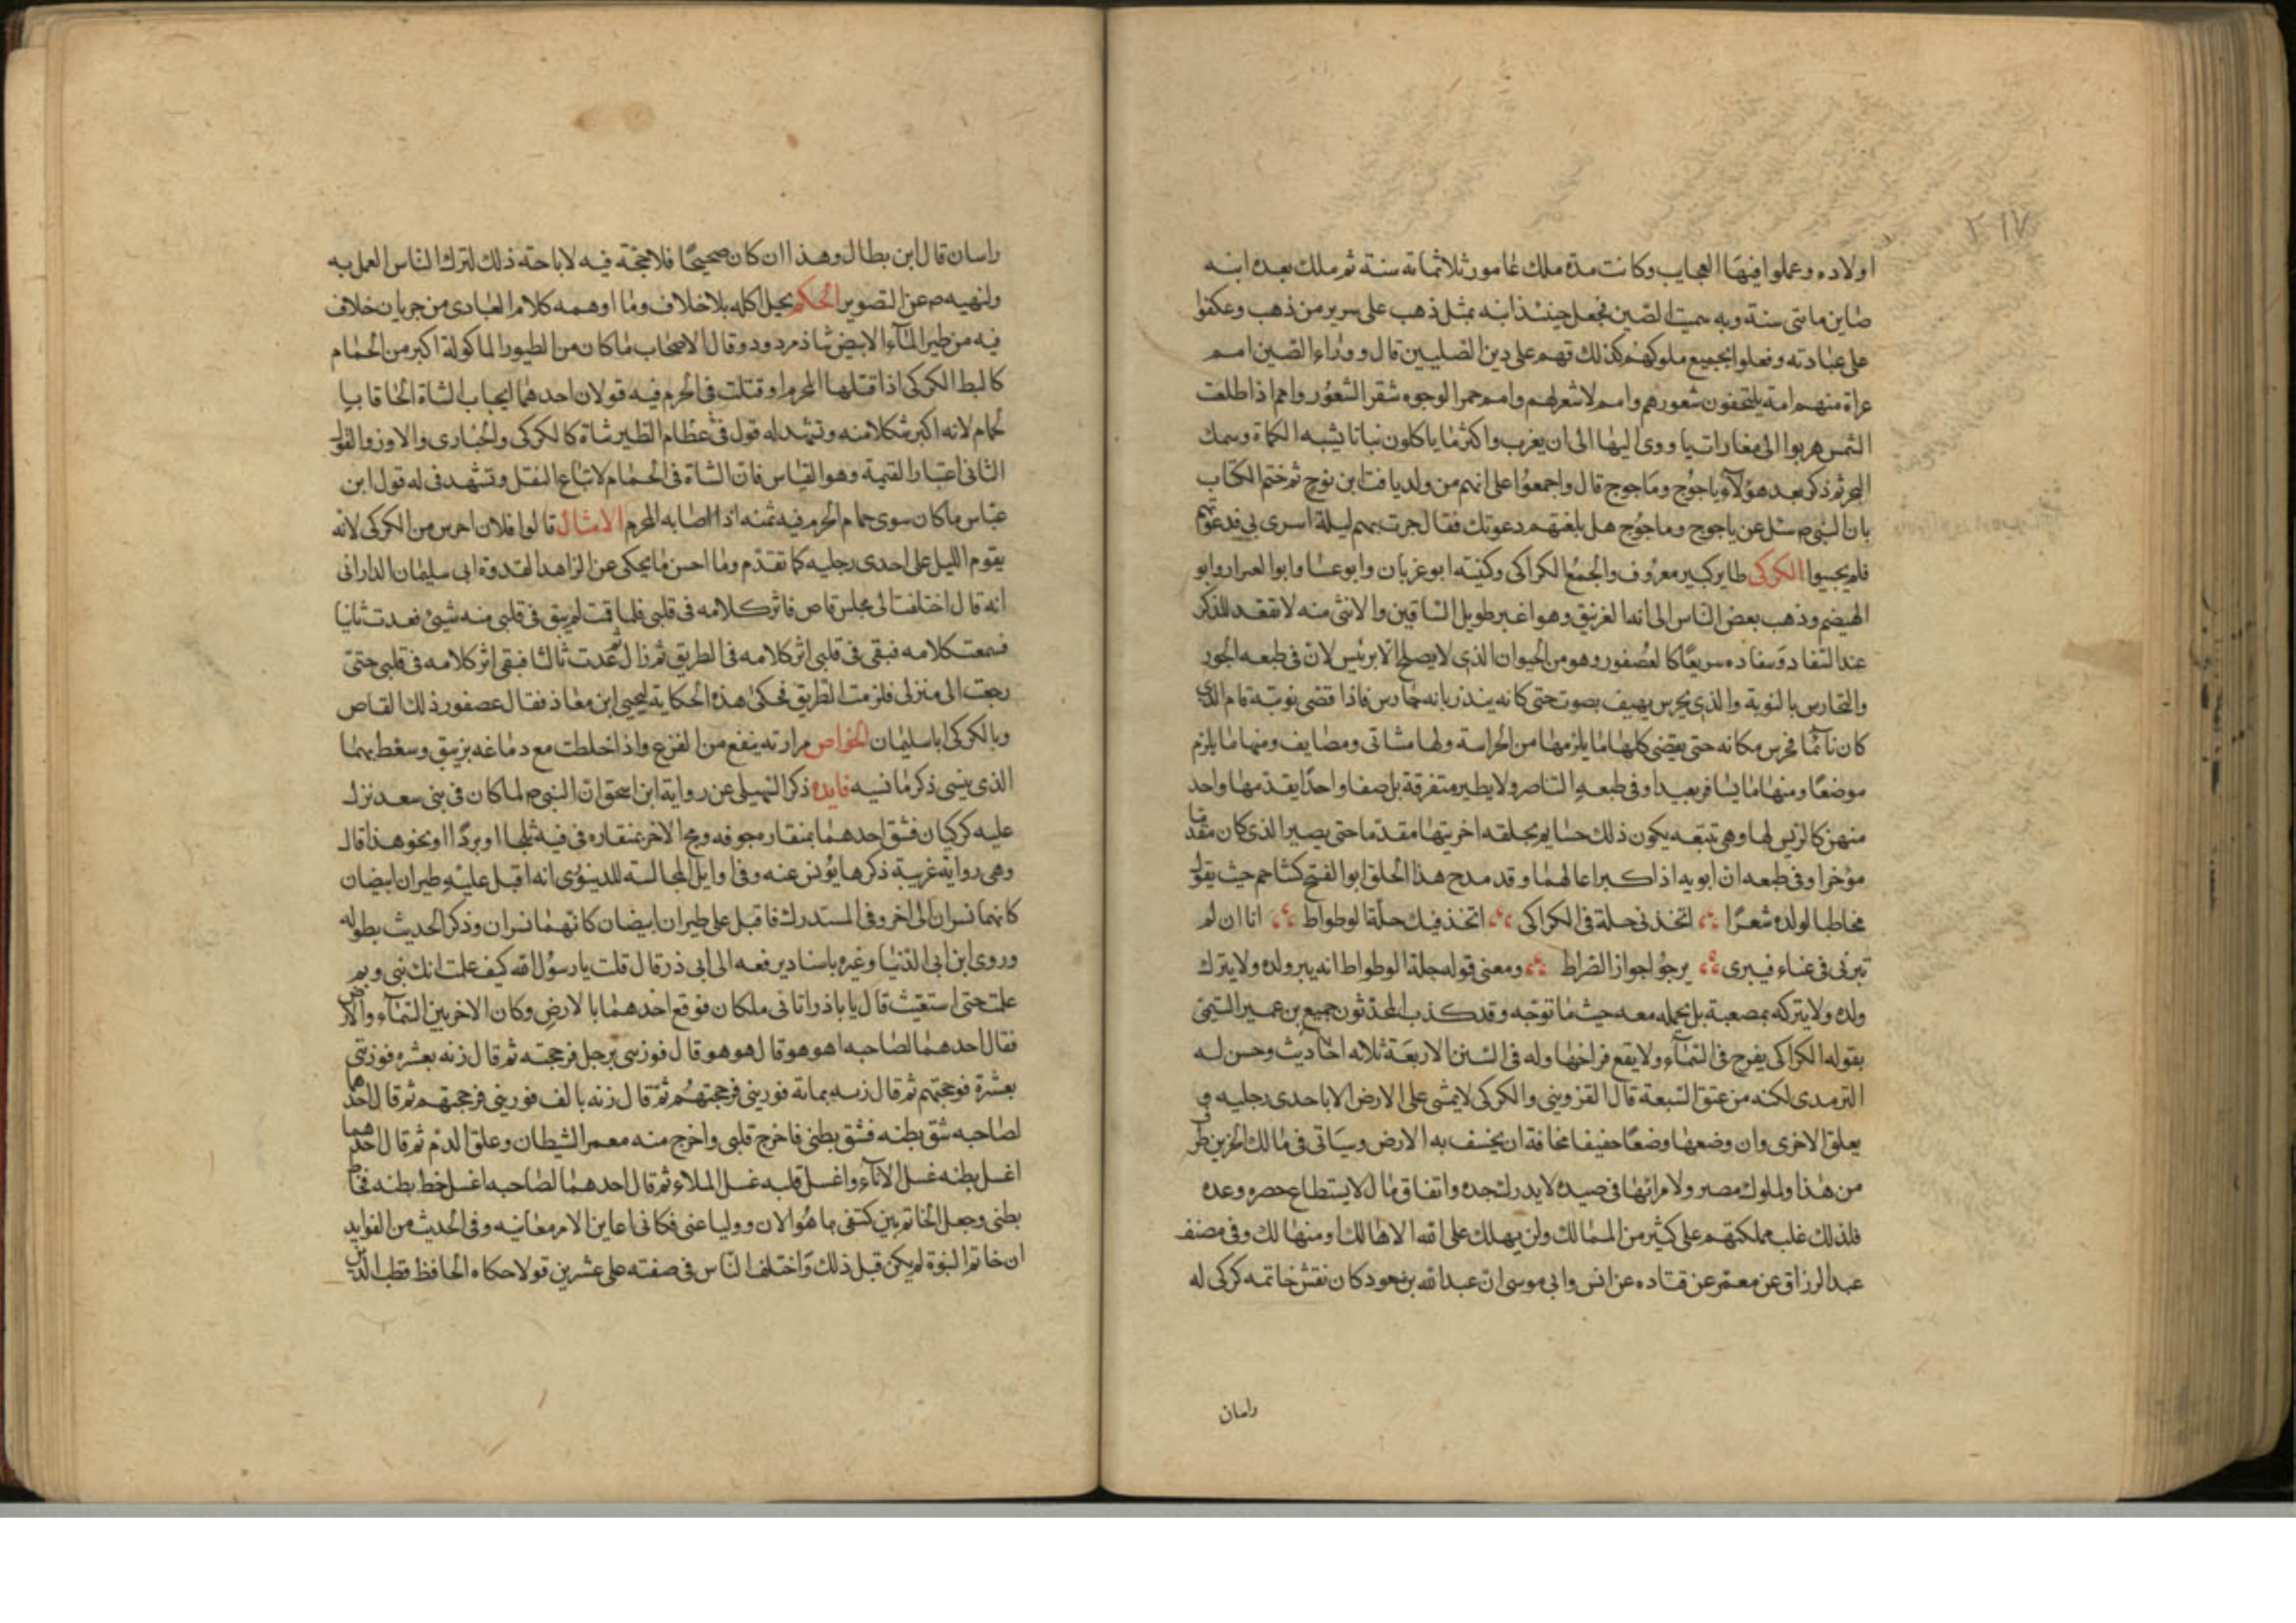 ٢١٧
اولاده وعملوا فيها العجايب وكانت مدة ملك غامور ثلاثمائه سنة ثم ملك بعده ابنه
صاين مائتى سنة وبه سميت الصين فجعل حينئذ ابنه بمثل ذهب على سرير من ذهب وعكفوا
على عبادته وفعلوا بجميع ملوكهم كذلك فهم على دين الصليبين قال ووراء الصين امم
عراة منهم امة يلتحفون شعورهم وامم لا شعر لهم وامم حمر الوجوه شقر الشعور وامم اذا طلعت
الشمس هربوا الى مغارات ياووى اليها الى ان يغرب واكثر ما ياكلون نباتا يشبه الكماة وسمك
البحر ثم ذكر بعد هولآء ياجوج وماجوج قال واجمعوا على انهم من ولد يافث ابن نوح ثم ختم الكتاب
بان النبى ص سئل عن ياجوج وماجوج هل بلغتهم دعوتك فقال جزت بهم ليلة اسرى بى فدعوتهم
فلم يجيبوا الكركى طاير كبير معروف والجمع الكراكى وكنيته ابو عريان وابو عسا وابو العيزار وابو
الهيضم وذهب بعض الناس الى انه الغرنيق وهو اغبر طويل الساقين والانثى منه لا تقعد للذكر
عند السفاد وسفاده سريعا كالعصفور وهو من الحيوان الذى لا يصلح الا برئيس لان فى طبعه الجور
والتحارس بالنوبة والذى يحرس يهيف بصوت حتى كانه ينذر بانه حارس فاذا قضى نوبته قام الذى
كان نائما فحرس مكانه حتى يقضى كلها ما يلزمها من الحراسة ولها مشاتى ومصايف ومنها ما يلزم
موضعا ومنها ما يسافر بعيدا وفى طبعه التناصر ولا يطير متفرقة بل صفا واحدا يقدمها واحد
منهن كالرئيس لها وهى تتبعه يكون ذلك حينا ثم يخلقه اخر يتها مقدما حتى يصير الذى كان مقدما
مؤخرا وفى طبعه ان ابويه اذا كبرا عالهما وقد مدح هذا الخلق ابو الفتح كشاجم حيث يقول
مخاطبا لولده شعرا اتخذ فى حلة فى الكراكى اتخذ فيك حلة الوطواط انا ان لم
تبرنى فى عناء فيبرى يرجوا جواز الصراط ومعنى قوله حلة الوطواط انه يبر ولده ولا يترك
ولده ولا يتركه بمصعبة بل يحمله معه حيث ما توجه وقد كذب المحدثون جميع بن عمير التيمى
بقوله الكراكى يفرح فى السمآء ولا يقع فراخها وله فى السنن الاربعة ثلاثه احاديث وحسن له
الترمدى لكنه من عتق الشيعة قال القزوينى والكركى لا يمشى على الارض الا باحدى رجليه و
يعلق الاخرى وان وضعها وضعا خفيفا مخافة ان يخسف به الارض وسياتى فى مالك الحزين طرف
من هذا ولملوك مصر ولامرائها فى صيده لا يدرك حده وانفاق مال لا يستطاع حصره وعده
فلذلك غلب مملكتهم على كثير من الممالك ولن يهلك على الله الا هالك او منها لك وفى مصنف
عبد الرزاق عن معمر عن قتاده عن انس وابى موسى ان عبد الله بن مسعود كان نقش خاتمه كركى له
راسان
راسان قال ابن بطال وهذا ان كان صحيحا فلا حجة فيه لاباحته ذلك لترك الناس العمل به
ولنهيه ص عن التصوير الحكم يحل اكله بلا خلاف وما اوهمه كلام العبادى من جريان خلاف
فيه من طير المآء الابيض شاذ مردود وقال الاصحاب ما كان من الطيور الماكولة اكبر من الحمام
كالبط الكركى اذا قتلها المحرم او قتلت فى الحرم فيه قولان احدهما ايجاب الشاة الحاقا بيا
لحمام لانه اكبر شكلا منه وتشهد له قول فى عظام الطير شاة كالكركى والحبارى والاوز والقول
الثانى اعتبار القيمة وهو القياس فان الشاة فى الحمام لاتباع النقل وتشهد فى له قول ابن
عباس ما كان سوى حمام الحرم فيه ثمنه اذا اصابه المحرم الامثال قالوا فلان احرس من الكركى لانه
يقوم الليل على احدى رجليه كما تقدم وما احسن ما يحكى عن الزاهد القدوة ابى سليمان الدارانى
انه قال اختلفت الى مجلس قاص فاثر كلامه فى قلبى فلما قمت لم يبق فى قلبى منه شيئ فعدت ثانيا
فسمعت كلامه فبقى فى قلبى اثر كلامه فى الطريق ثم زال ثم عدت ثالثا فبقى اثر كلامه فى قلبى حتى
رجعت الى منزلى فلزمت الطريق فحكى هذه الحكاية ليحيى ابن معاذ فقال عصفور ذلك القاص
وبالكركى ابا سليمان الخواص مرارته ينفع من القزع واذا خلطت مع دماغه بزيبق وسعط بهما
الذى ينسى ذكر ما نسيه فايده ذكر السهيلى عن رواية ابن اسحق ان النبى ص لما كان فى بنى سعد نزل
عليه كركيان فشق احدهما بمنقاره جوفه ومج الاخر بمنقاره فى فيه ثلجا او بردا او نحو هذا قال
وهى رواية غريبة ذكرها يونس عنه وفى اوايل المجالسة للدينورى انه اقبل عليه طيران ابيضان
كانهما نسران الى اخر وفى المستدرك فاقبل على طيران ابيضان كانهما نسران وذكر الحديث بطوله
وروى ابن ابى الدنيا وغيره باسناد يرفعه الى ابى ذر قال قلت يا رسول الله كيف علمت انك نبى وبم
علمت حتى استقيت قال يا باذر اتانى ملكان فوقع احدهما بالارض وكان الاخر بين السمآء والارض
فقال احدهما لصاحبه اهو هو قال هو هو قال فوزنى برجل فرجحته ثم قال زنه بعشره فوزنتى
بعشرة فرجحتهم ثم قال زنه بمائة فوزينى فرجحتهم ثم قال زنه بالف فوزينى فرجحتهم ثم قال احدهما
لصاحبه شق بطنه فشق بطنى فاخرج قلبى واخرج منه مغمر الشيطان وعلق الدم ثم قال احدهما
اغسل بطنه غسل الانآء واغسل قلبه غسل الملاء ثم قال احدهما لصاحبه اغسل خط بطنه فخاط
بطنى وجعل الخاتم بين كتفى بما هو الان ووليا عنى فكانى اعاين الامر معاينه وفى الحديث من الفوايد
ان خاتم النبوة لم يكن قبل ذلك واختلف الناس فى صفته على عشرين قولا حكاه الحافظ قطب الدين